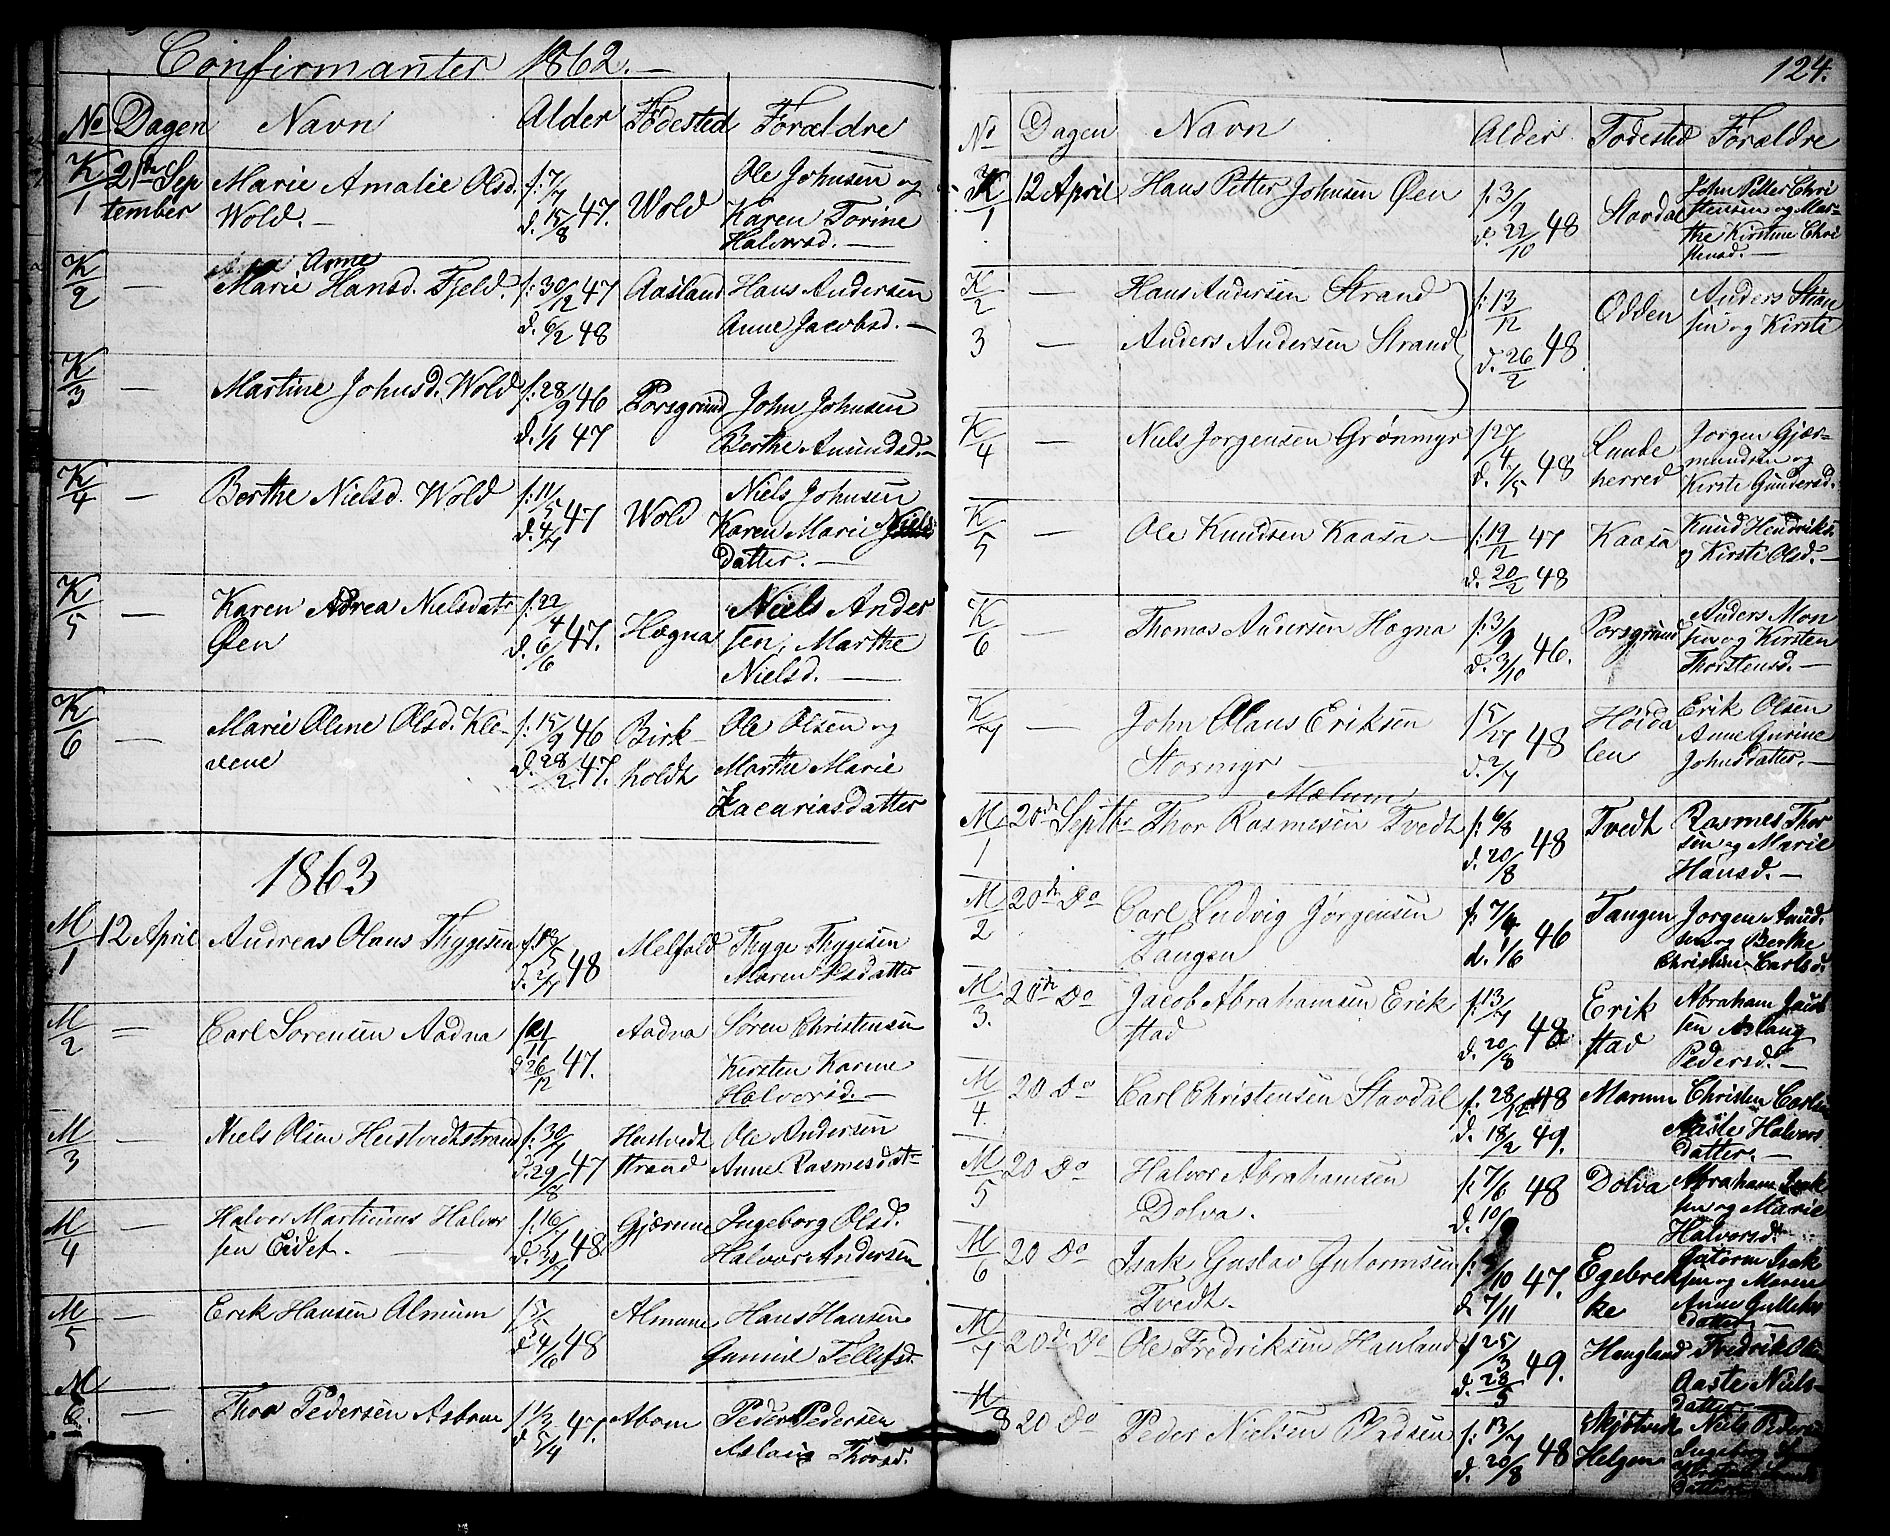 Confirmanter 1862.
No Dagen Navn Alder Födested Forældre
K/1 21de September Marie Amalie Olsd. Wold. f: 7/7 d. 15/8 47. Wold Ole Johnsen og Karen Torine Halvorsd.
K/2 — Anne Marie Hansd. Fjeld. f: 30/12 47 d. 6/2 48 Aasland Hans Andersen Anne Jacobsd.
K/3 — Martine Johnsd. Wold f: 28/9 46 d. 1/1 47 Porsgrund John Johnsen Berthe Amundsd.
K/4 — Berthe Nielsd. Wold Wold Niels Johnsen Karen Marie Nielsdatter.
K/5 — Karen Adrea Nielsdatr Øen f: 22/4 d. 6/6 47. Hogna Niels Andersen, Marthe Nielsd.
K/6 — Marie Oline Olsd. Kleevene f: 15/9 46 d. 28/2 47. Birkholdt Ole Olsen og Marthe Marie Zacariasdatter
1863
M/1 12 April Andreas Olaus Thygesen 48 Melfald Thyge Thygesen Maren
M/2 = Carl Sorensen Aadna d 26/12 47. Aadna Sören Christensen Kirsten Karine Halvorsd.
M/3 — Niels Olsen Heistvedtstrand 47 Heistvedtstrand Ole Andersen Anne Rasmesdat-
M/4 — Halvor Martinius Halvorsen Eidet. 48 Gjærume Ingeborg Olsd. Halvor Andersen
M/5 — Erik Hansen Almum 48 Almune Hans Hansen Gunnil Tellefsd.
M/6. — Thor Pedersen Asbom 47. Abom Peder Pedersen Aslaug Thorsd.
124.
No Dagen Navn Alder Fodested Forældre
K/1 12 April Hans Petter Johnsen Øen f: 3/9 d. 22/10 48 Stavdal John Petter Christensen og Marthe Kirstine Christensd.
K/2 — Hans Andersen Strand f: 13/12 d. 26/2 48. Odden Anders og Kirsti
3 — Anders Andersen Strand
K/4 — Niels Jorgensen Grønmyr f 27/4 d. 1/5 48 Lundeherred Jorgen Gjærmundsen og Kirsti Gundersd.
K/5 — Ole Knudsen Kaasa f: 19/12 47 d. 20/2 48 Kaasa Knud Hendriks. og Kirsti Olsd.
K/6 — Thomas Andersen Hogna f: 3/9 d. 3/10 46. Porsgrund Anders Monsen og Kirsten Thorstensd.
K/7 — John Olaus Eriksen Stormyr 48 Höidalen Erik Olsen Anne Gurine Johnsdatter.
Mælum
M/1 20de Septbr Thor Rasmesen Tvedt f: 6/8 d. 20/8 48 Tvedt Rasmes Thorsen og Marie Hansd.
M/2 20de Do Carl Ludvig Jørgensen Tangen d. 1/6 46 Tangen Jorgen Amundsen og Berthe Christine Carlsd.
M/3. 20de Do Jacob Abrahamsen Erikstad f: 13/7 d. 20/8 48 Erikstad Abraham Aslaug Pedersd.
M/4. 20 Do Carl Christensen Stavdal f: 28/12 48 d. 18/2 49. Marum Christen Halvorsdatter.
M/5 20 Do Halvor Abrahamsen Dolva. f: 7/6 48 d. 10/ Dolva Abraham Isaksen og Marie Halvorsd.
M/6 20 Do Isak Gustav Gutormsen Tvedt. /10 47. d. 7/11 Egebrekke Gutorm Isaksen og Maren Anne datter
M/7 20de Do Ole Fredriksen Haukland f 25/3 49. d. 23/5 Fredrik Aaste Nielsdatter
M/8 20 Do Peder Nielsen f: 13/7 d. 20/8 48 Helgen Niels Peders Ingeborg datter